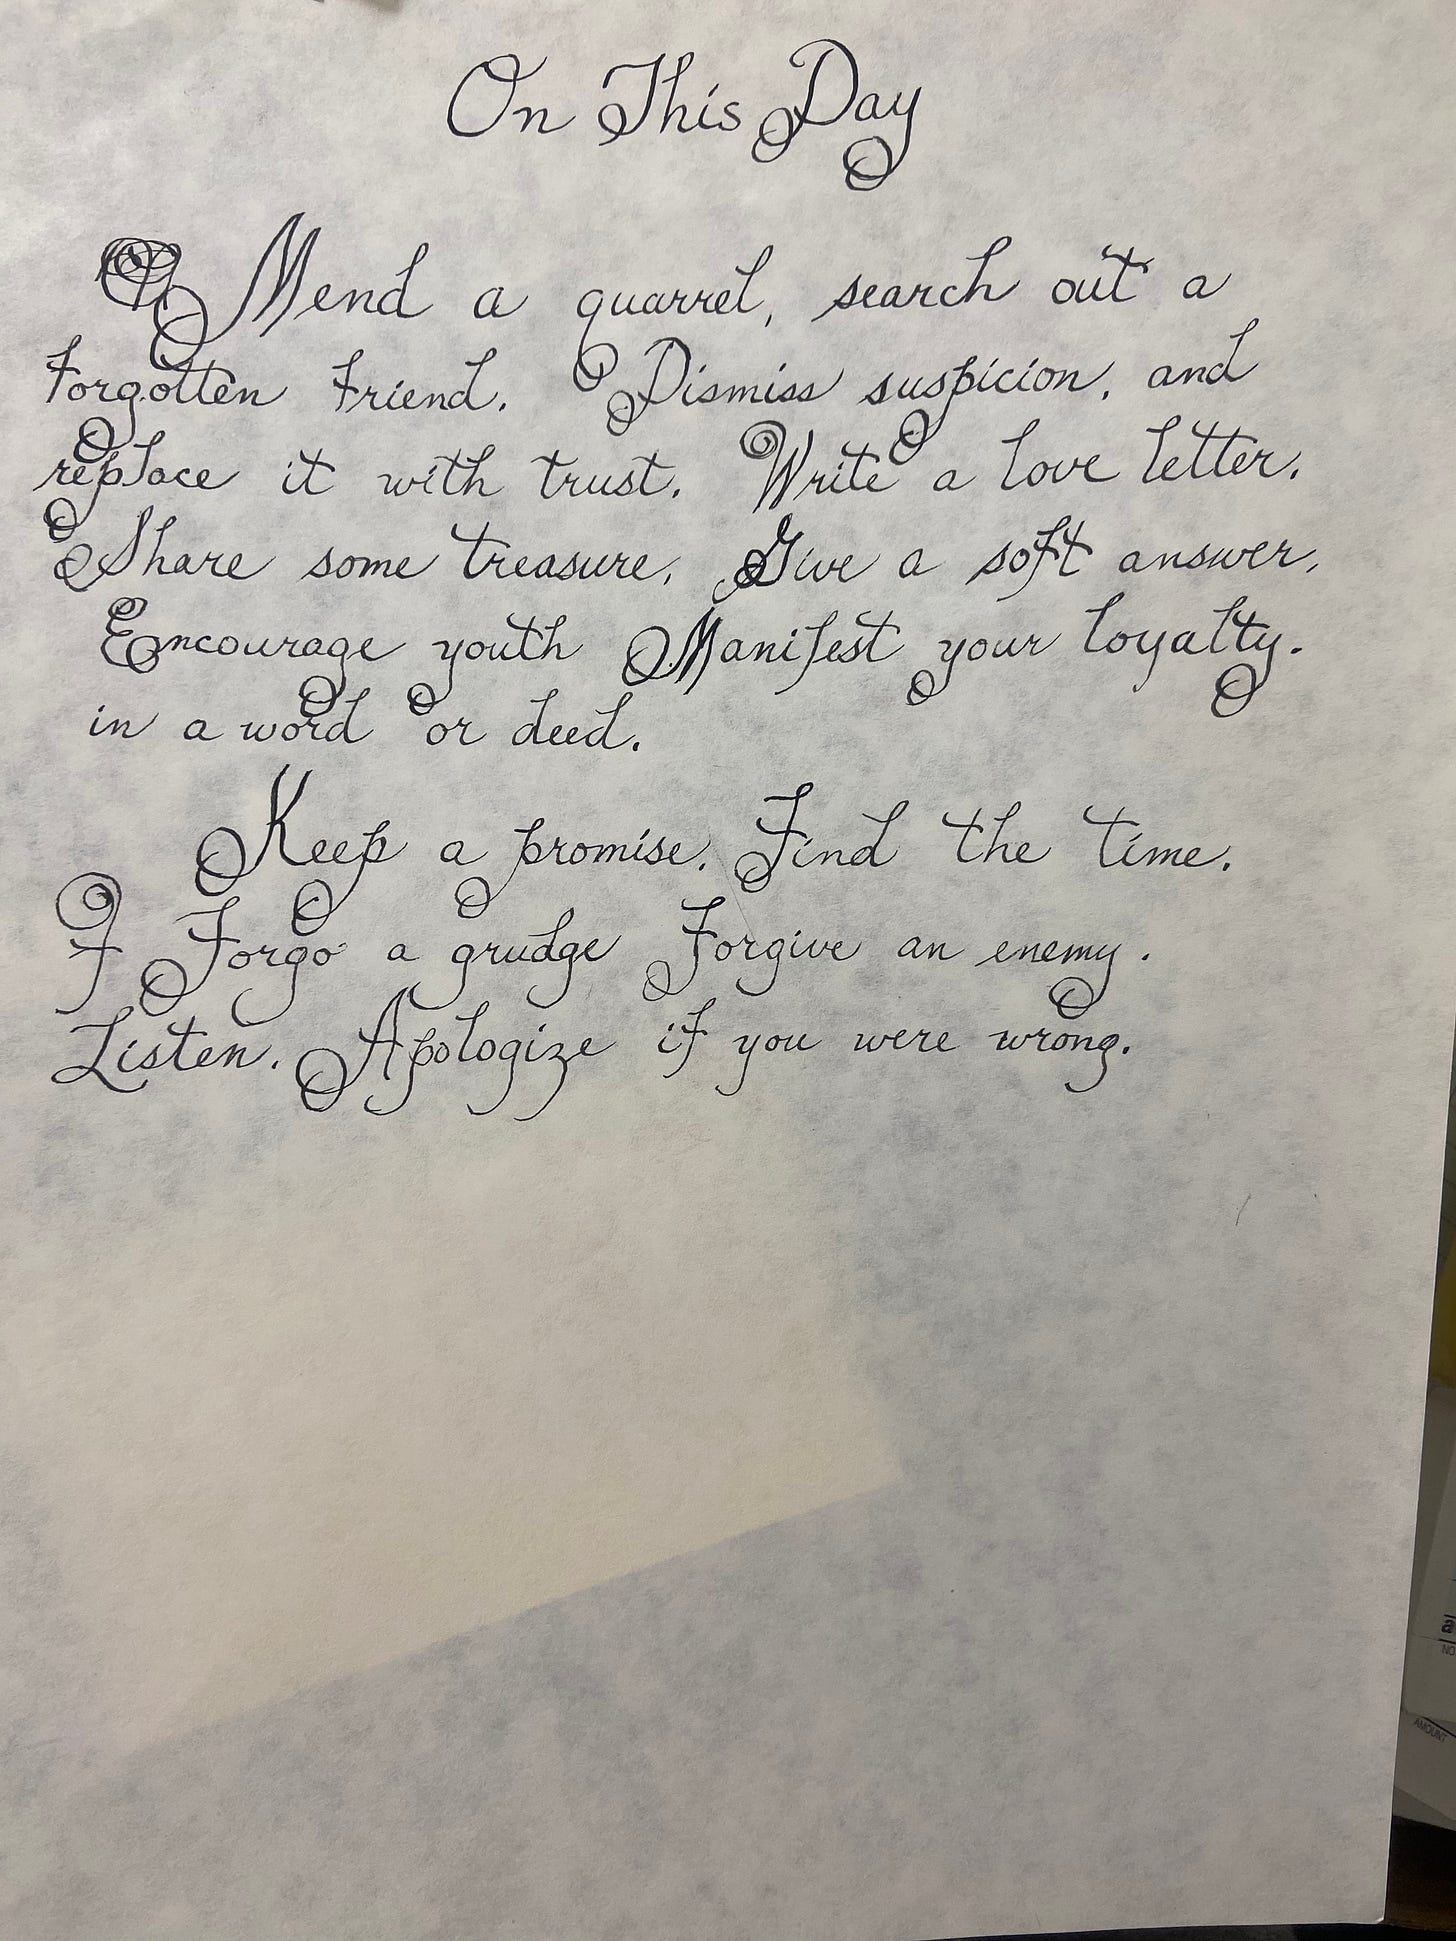 On This Day
Mend a quarrel, search out a
Forgotten Friend. Dismiss suspicion, and
replace it with trust. Write a love letter.
Share some treasure. Give a soft answer.
Encourage youth Manifest your loyalty.
in a word or deed.
Keep a promise. Find the time.
F Forgo a grudge Forgive an enemy.
Listen. Apologize if you were wrong.
a
NO
AMOUNT